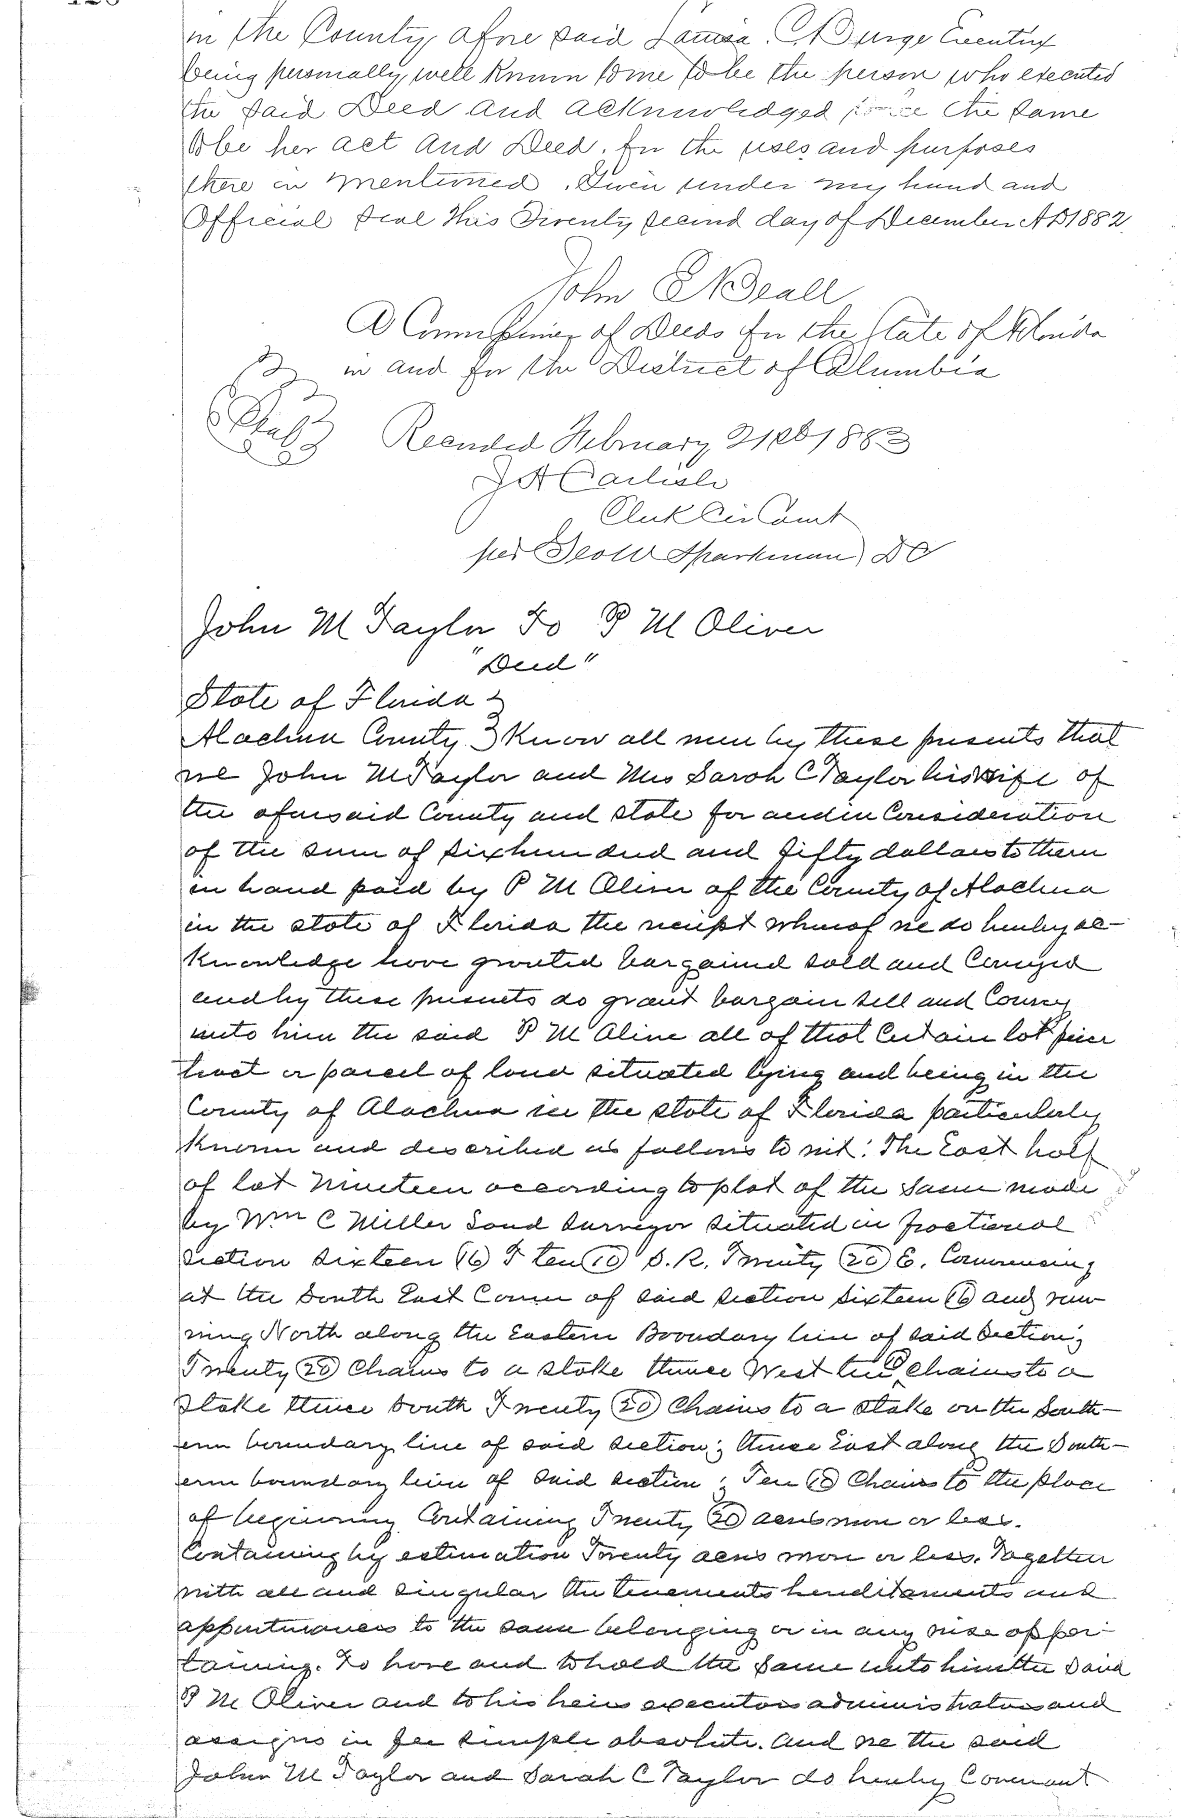 in the County afore said Louisa C Burge Executrix
being personally well Known to me to be the person who executed
the said Deed and acknowledged the same
to be her act and Deed. for the uses and purposes
there in mentioned. Given under my hand and
Official Seal this Twenty second day of December AD 1882.
John E Beall
A Commissioner of Deeds for the State of Florida
in and for the District of Columbia
Seal
Recorded February 21st 1883
J A Carlisle
Clerk Cir Court
per Geo W Sparkman DC
John M Taylor To P M Oliver
"Deed"
State of Florida }
Alachua County } Know all men by these presents that
we John M Taylor and Mrs Sarah C Taylor his wife of
the aforesaid County and state for and in Consideration
of the sum of six hundred and fifty dollars to them
in hand paid by P M Oliver of the County of Alachua
in the state of Florida the receipt whereof we do hereby ac-
knowledge have granted bargained sold and Conveyed
and by these presents do grant bargain sell and Convey
unto him the said P M Oliver all of that Certain lot piece
tract or parcel of land situated lying and being in the
County of Alachua in the state of Florida particularly
Known and described as follows to wit: The East half
of lot Nineteen according to plat of the same made
by Wm C Miller Land Surveyor situated in fractional
section sixteen (16) T ten (10) S. R. Twenty (20) E. Commencing
at the South East Corner of said section sixteen (16) and run-
ning North along the Eastern Boundary line of said Section;
Twenty (20) Chains to a stake thence West ten (10) chains to a
stake thence South Twenty (20) Chains to a stake on the South-
ern boundary line of said section; thence East along the South-
ern boundary line of said section; Ten (10) Chains to the place
of beginning Containing Twenty (20) acres more or less.
Containing by estimation Twenty acres more or less. Together
with all and singular the tenements hereditaments and
appurtenances to the same belonging or in any wise apper-
taining. To have and to hold the same unto him the said
P M Oliver and to his heirs executors administrators and
assigns in fee simple absolute. And we the said
John M Taylor and Sarah C Taylor do hereby Covenant